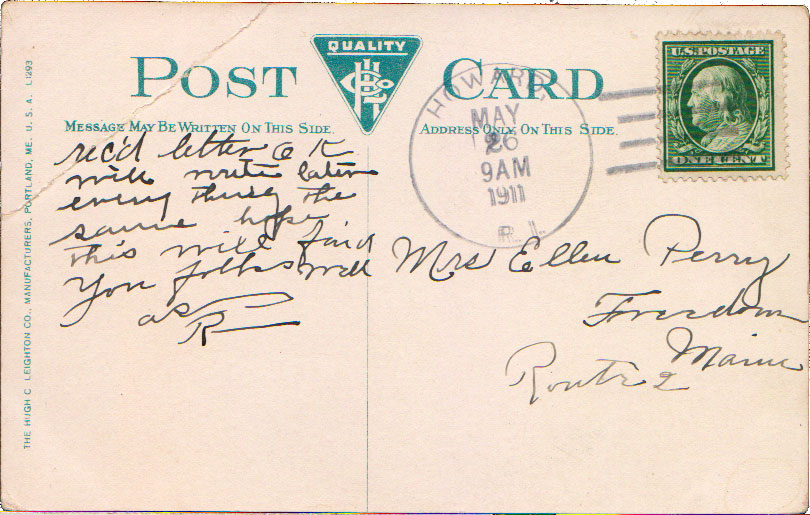 POST CARD
QUALITY
HCL Co
MESSAGE MAY BE WRITTEN ON THIS SIDE.
ADDRESS ONLY ON THIS SIDE
HOWARD,
MAY
26
9AM
1911
R.I.
U.S. POSTAGE
ONE CENT
rec'd letter O K
will write later
every thing the
same hope
this will find
you folks well
as
R
Mrs Ellen Perry
Freedom
Maine
Route 2
THE HUGH C. LEIGHTON CO., MANUFACTURERS, PORTLAND, ME. U.S.A. L1293